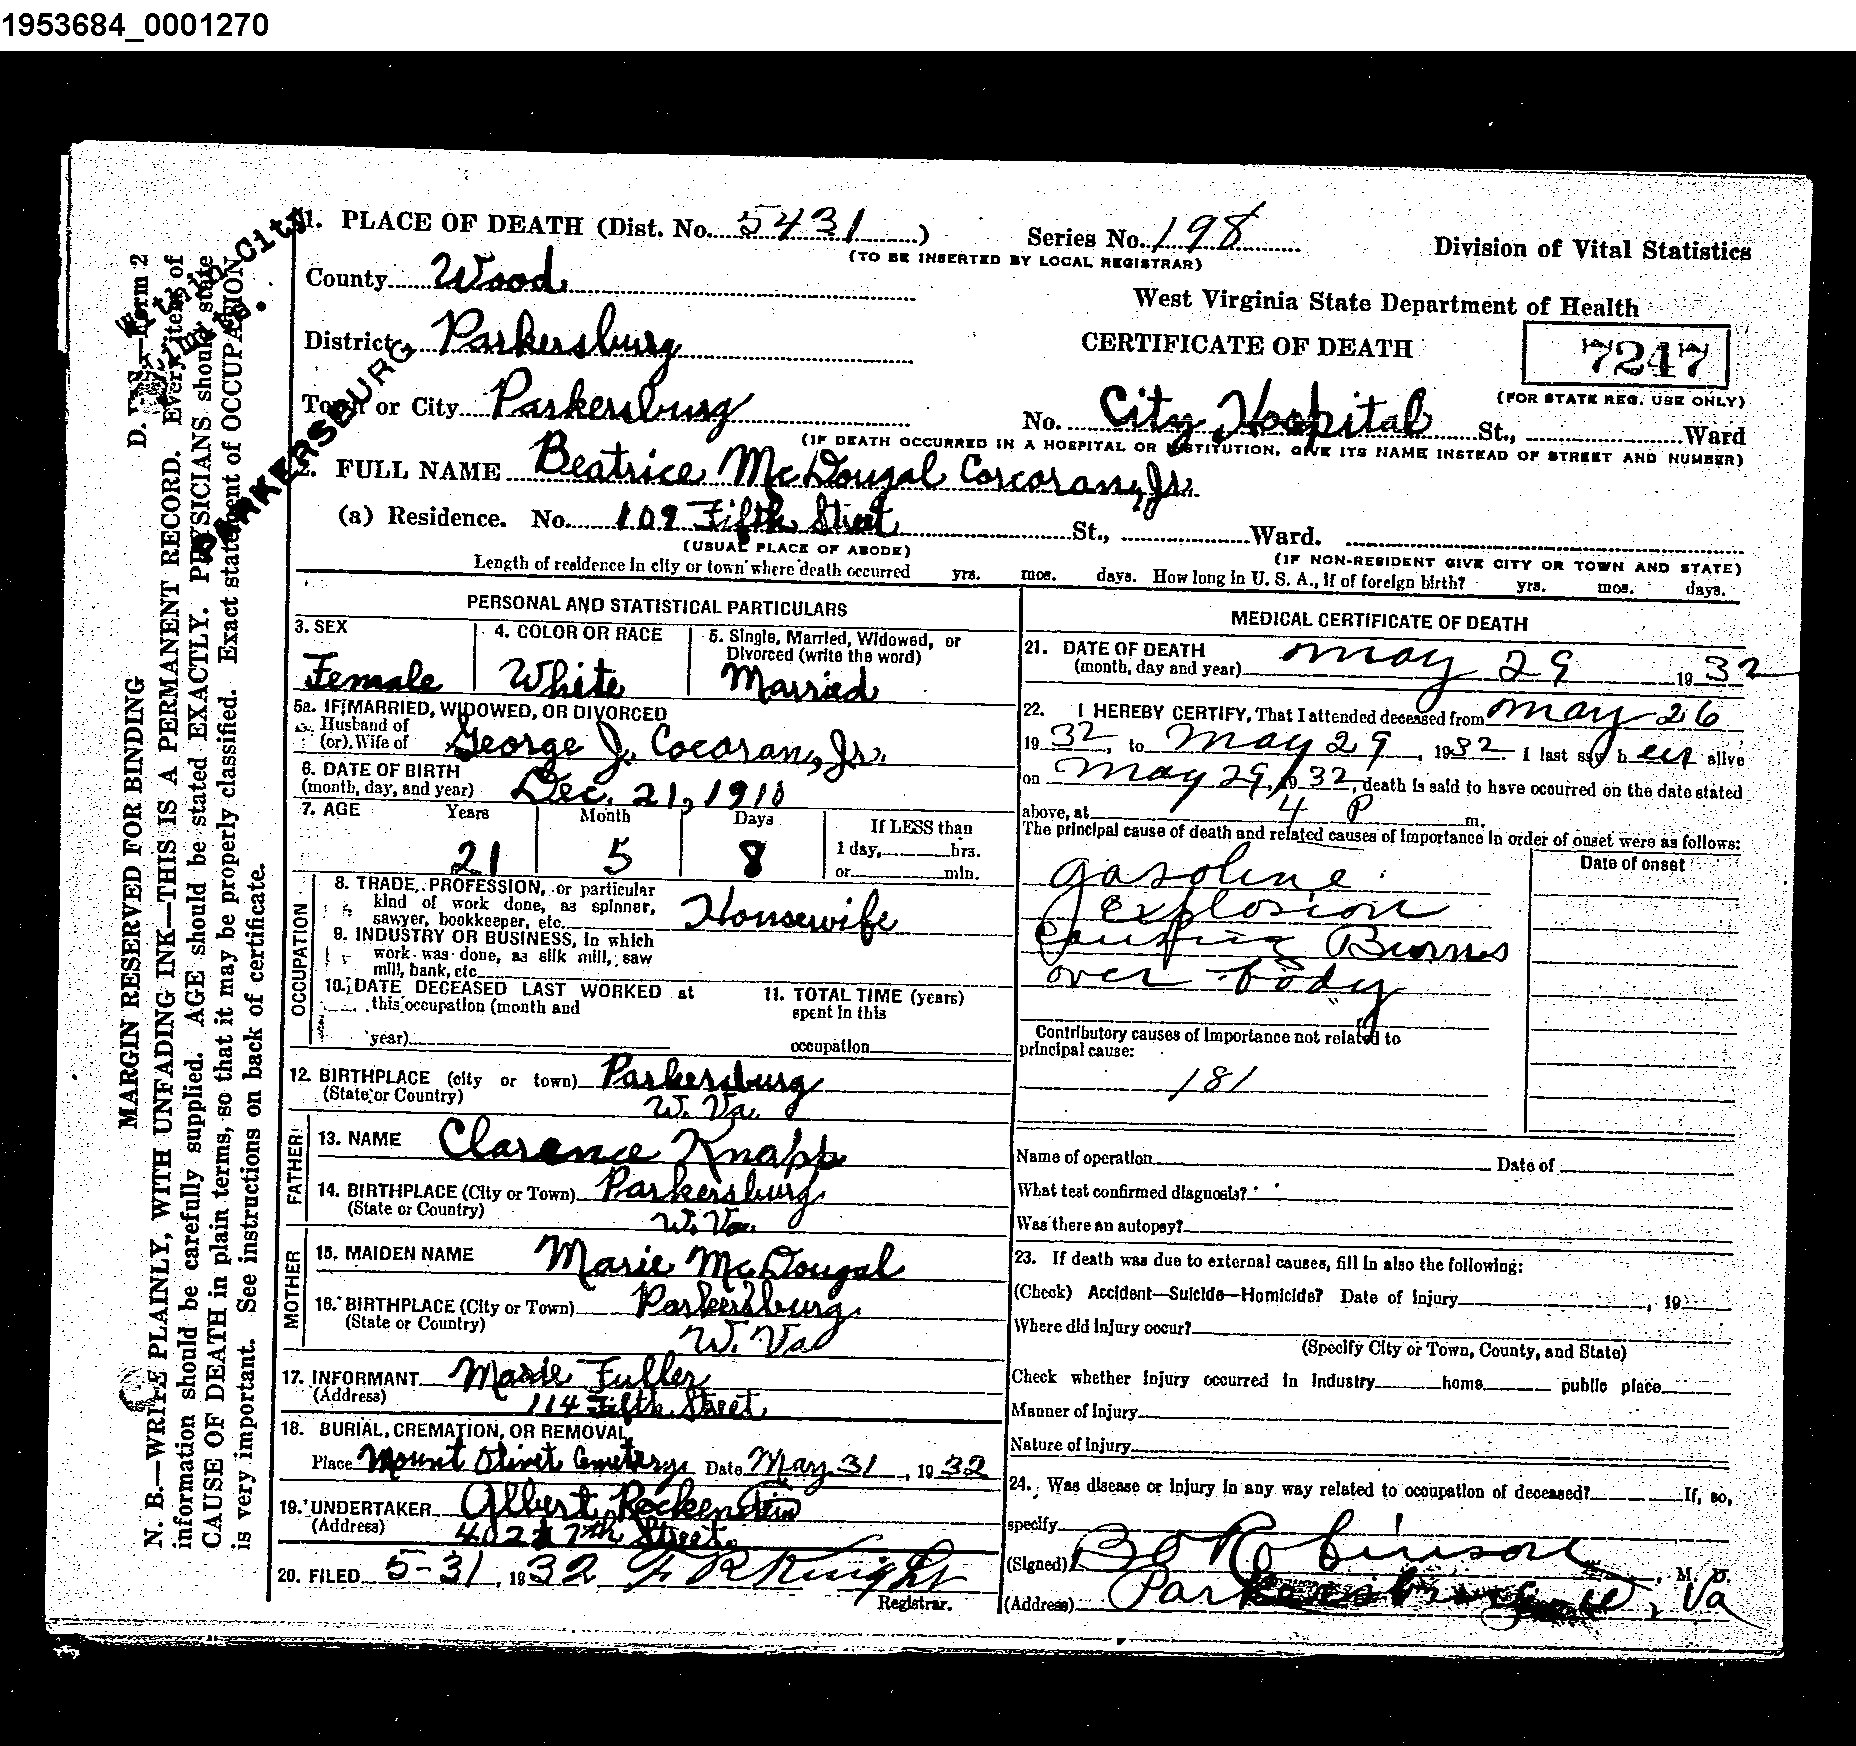 1953684_0001270
1. PLACE OF DEATH (Dist. No. 5431)
Series No. 198
(TO BE INSERTED BY LOCAL REGISTRAR)
Division of Vital Statistics
County Wood
West Virginia State Department of Health
District Parkersburg
CERTIFICATE OF DEATH
7247
(FOR STATE REG. USE ONLY)
Town or City Parkersburg
No. City Hospital St., Ward
(IF DEATH OCCURRED IN A HOSPITAL OR INSTITUTION, GIVE ITS NAME INSTEAD OF STREET AND NUMBER)
PARKERSBURG
2. FULL NAME Beatrice McDougal Corcoran, Jr.
(a) Residence. No. 109 Fifth Street St., Ward.
(USUAL PLACE OF ABODE)
(IF NON-RESIDENT GIVE CITY OR TOWN AND STATE)
Length of residence in city or town where death occurred yrs. mos. days. How long in U. S. A., if of foreign birth? yrs. mos. days.
PERSONAL AND STATISTICAL PARTICULARS
3. SEX
Female
4. COLOR OR RACE
White
5. Single, Married, Widowed, or
Divorced (write the word)
Married
5a. IF MARRIED, WIDOWED, OR DIVORCED
Husband of
(or) Wife of George J. Cocoran, Jr.
6. DATE OF BIRTH
(month, day, and year) Dec. 21, 1910
7. AGE Years Month Days
21 5 8
If LESS than
1 day, hrs.
or min.
OCCUPATION
8. TRADE, PROFESSION, or particular
kind of work done, as spinner,
sawyer, bookkeeper, etc. Housewife
9. INDUSTRY OR BUSINESS, in which
work was done, as silk mill, saw
mill, bank, etc.
10. DATE DECEASED LAST WORKED at
this occupation (month and
year)
11. TOTAL TIME (years)
spent in this
occupation
12. BIRTHPLACE (city or town) Parkersburg
(State or Country) W. Va.
FATHER
13. NAME Clarence Knapp
14. BIRTHPLACE (City or Town) Parkersburg
(State or Country) W. Va.
MOTHER
15. MAIDEN NAME Marie McDougal
16. BIRTHPLACE (City or Town) Parkersburg
(State or Country) W. Va
17. INFORMANT Marie Fuller
(Address) 114 Fifth Street
18. BURIAL, CREMATION, OR REMOVAL
Place Mount Olivet Cemetery Date May 31, 1932
19. UNDERTAKER Albert Rockenstein
(Address) 402 7th Street
20. FILED 5-31, 1932 F R Knight
Registrar.
MEDICAL CERTIFICATE OF DEATH
21. DATE OF DEATH
(month, day and year) May 29 1932
22. I HEREBY CERTIFY, That I attended deceased from May 26
1932, to May 29, 1932. I last saw her alive
on May 29, 1932, death is said to have occurred on the date stated
above, at 4 P m.
The principal cause of death and related causes of importance in order of onset were as follows:
Date of onset
Gasoline
Explosion
Causing Burns
over body
Contributory causes of importance not related to
principal cause:
181
Name of operation Date of
What test confirmed diagnosis?
Was there an autopsy?
23. If death was due to external causes, fill in also the following:
(Check) Accident—Suicide—Homicide? Date of injury , 19
Where did injury occur?
(Specify City or Town, County, and State)
Check whether injury occurred in industry home public place
Manner of Injury
Nature of Injury
24. Was disease or injury in any way related to occupation of deceased? If, so,
specify
(Signed) B O Robinson, M. D.
(Address) Parkersburg W, Va
MARGIN RESERVED FOR BINDING
N. B.—WRITE PLAINLY, WITH UNFADING INK—THIS IS A PERMANENT RECORD. Every item of
information should be carefully supplied. AGE should be stated EXACTLY. PHYSICIANS should state
CAUSE OF DEATH in plain terms, so that it may be properly classified. Exact statement of OCCUPATION
is very important. See instructions on back of certificate.